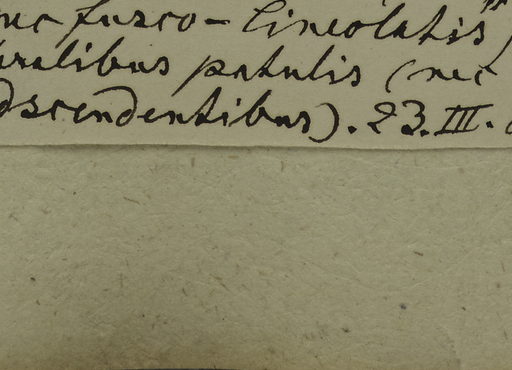 fusco-lineolatis"
patulis (nec
adscendentibus). 23. III.